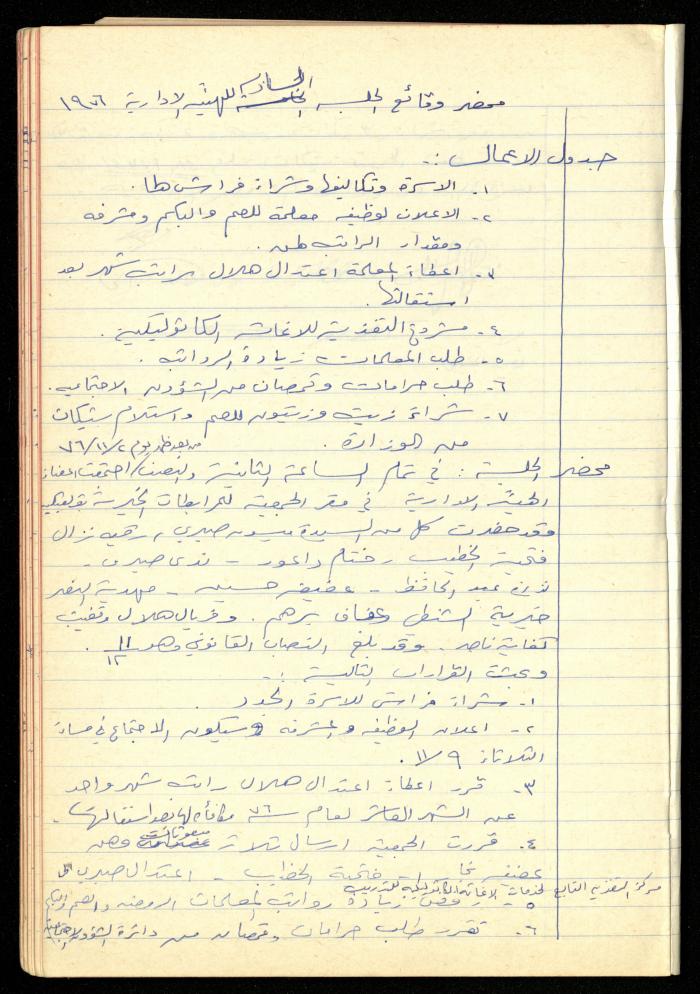 محضر وقائع الجلسة السادسة للهيئة الادارية ١٩٧٦
جدول الاعمال :-
١- الاسرة وتكاليفها وشراء فراش لها .
٢- الاعلان لوظيفة معلمة للصم والبكم ومشرفه
ومقدار الراتب لهن .
٣- اعطاء المعلمة اعتدال هلال راتب شهر بعد
استقالتها .
٤- مشروع التغذية للاغاثة الكاثوليكية .
٥- طلب المعلمات زيادة الرواتب .
٦- طلب حرامات وقمصان من الشؤون الاجتماعيه .
٧- شراء زيت وزيتون للصم واستلام شيكات
من الوزارة .
من بعد ظهر يوم ٧٦/١١/٢
محضر الجلسة : في تمام الساعة الثانية والنصف / اجتمعت اعضاء
الهيئة الادارية في مقر الجمعية
وقد حضرت كل من السيدة ميسون صبري ، رقيه نزال
فتحية الخطيب ، ختام داعور - ندى صبري -
عبد الحافظ - عفيفه حسين - مهدية
خيرية الشنطي وعفاف برهم . وفريال هلال وتغيبت
كفاية ناصر . وقد بلغ النصاب القانوني وهو ١١/١٢ .
وبحثت القرارات التالية :-
١- شراء فراش للاسرة الجدد .
٢- اعلان الوظيفه والمشرفه وسيكون الاجتماع في مساء
الثلاثاء ١١/٩ .
٣- قرر اعطاء اعتدال هلال راتب شهر واحد
عن الشهر العاشر لعام سنة ٧٦ مكافأة لها بعد استقالتها .
٤- قررت الجمعية ارسال ثلاث مبعوثات وهن
فتحية الخطيب - اعتدال صبري الى
مركز التغذية التابع لخدمات الاغاثة الكاثوليكية للتدريب
٥- زيادة رواتب لمعلمات الروضه والصم والبكم
٦- تقرر طلب حرامات وقمصان من دائرة الشؤون الاجتماعية